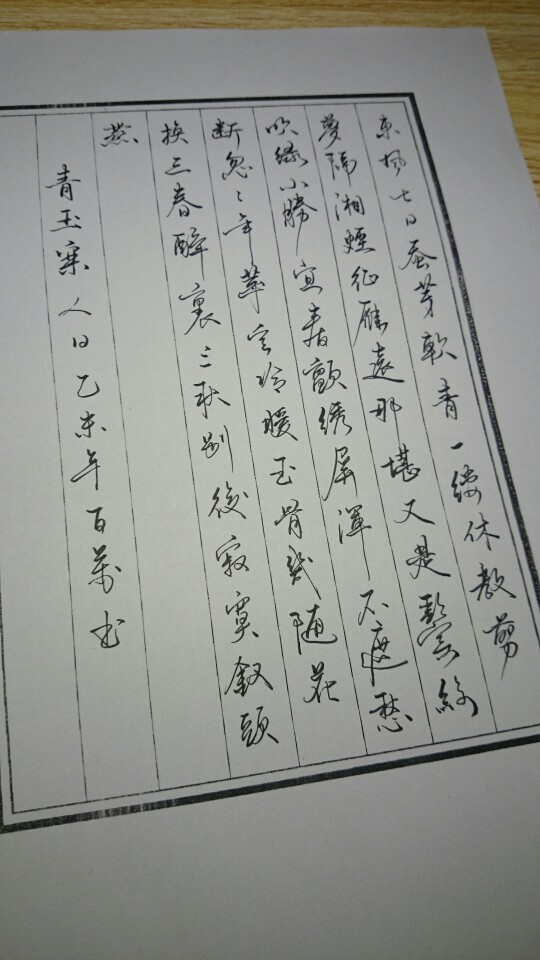 東風七日蚕芽軟青一縷休教剪
夢隔湘煙征雁遠那堪又是鬢絲
吹綠小勝宜春顫绣屏渾不遮愁
断忽〻年華空冷暖玉骨幾隨花
换三春醉裏三秋别後寂寞釵頭
燕
青玉案人日乙未年百萬书